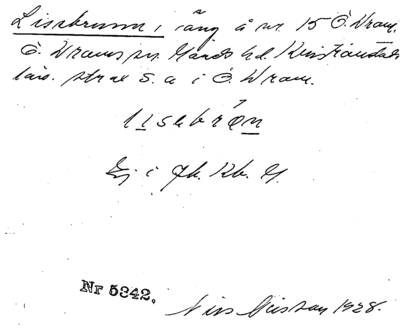 Lissebrunn i äng å nr 15 Ö. Vram,
Ö. Vrams sn. Gärds hd. Kristianstads
län. strax S. a i Ö. Vram.
lisebrøn
Ej i Gk. Kb. G.
Nr 5342.
Nils 1928.